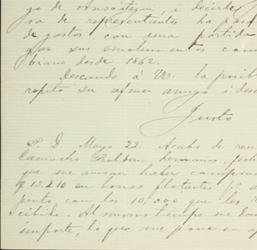 ga de Amsategui, i decirle
va de representantes ha pasa
de gastos con una partida
por sus emolumentos como
brano desde 1862.
Deseando á Ud. la posib
repito su afmo amigo i des
Justo
P. D. Mayo 22. Acabo de
Camacho Roldan hermanos,
que me avisan haber
$ 13.210 en bonos flotantes
junto con los 10.000 que les
cibido. Al mismo tiempo me
importe, lo que me pone en